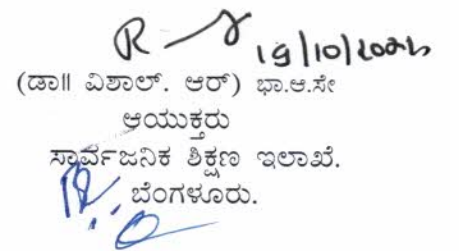 19/10/2022
(ಡಾ॥ ವಿಶಾಲ್. ಆರ್) ಭಾ.ಆ.ಸೇ
ಆಯುಕ್ತರು
ಸಾರ್ವಜನಿಕ ಶಿಕ್ಷಣ ಇಲಾಖೆ.
ಬೆಂಗಳೂರು.